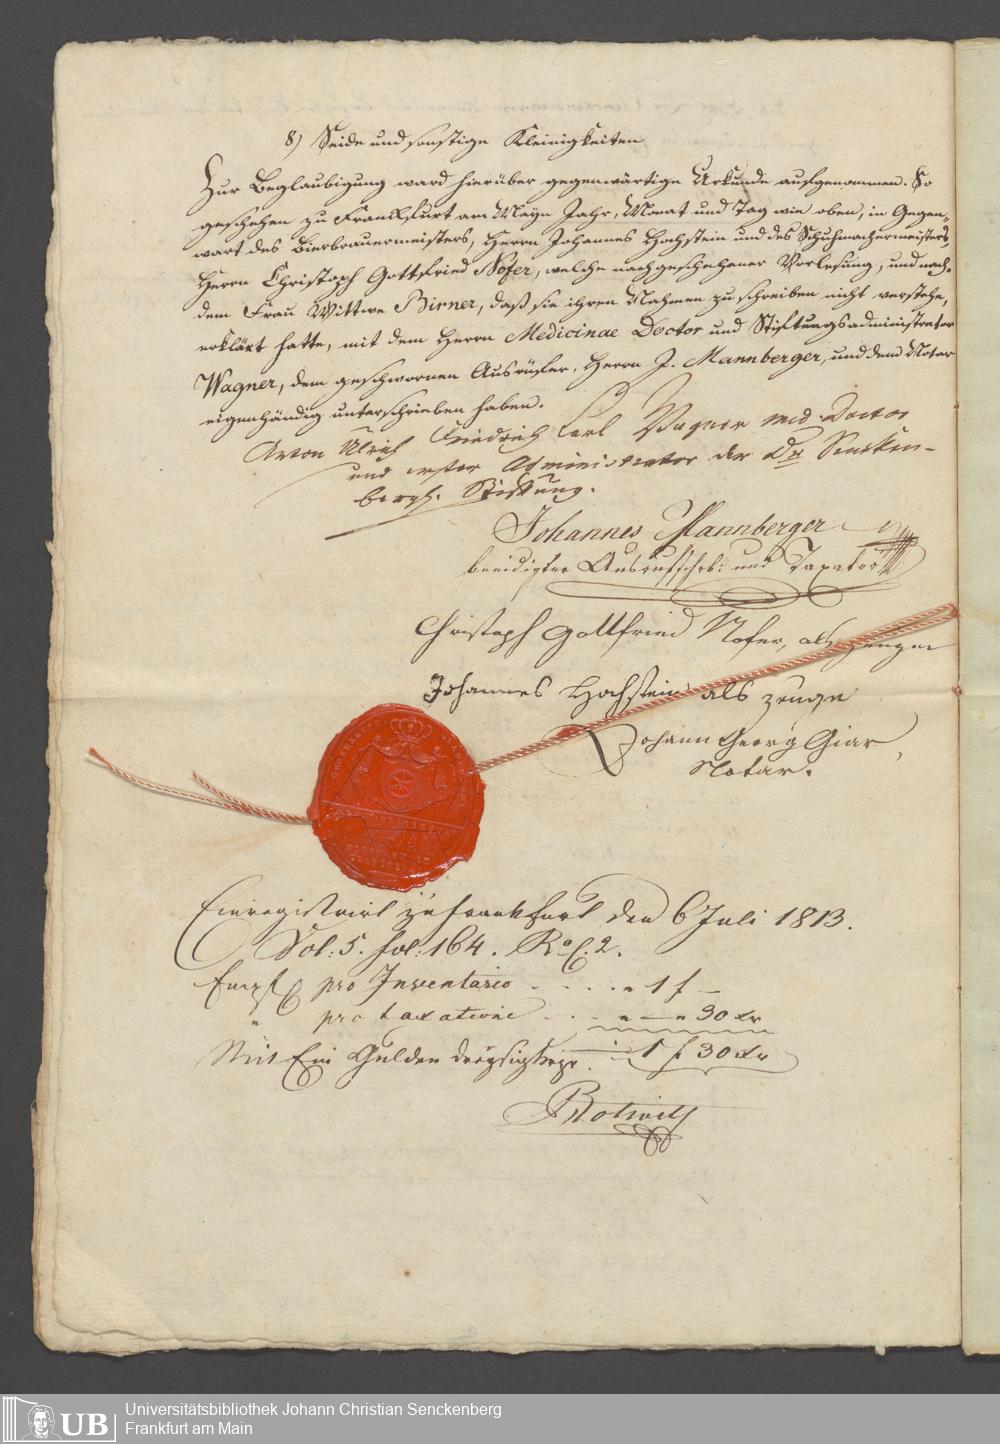 8) Seide und sonstige Kleinigkeiten
Zur Beglaubigung ward hierüber gegenwärtige Urkunde aufgenommen. So
geschehen zu Frankfurt am Mayn Jahr, Monat und Tag wie oben, in Gegen-
wart des Bierbrauermeisters, Herrn Johannes Hochstein und des Schuhmachermeisters
Herrn Christoph Gottfried Nofer, welche nach geschehener Vorlesung, und nach-
dem Frau Wittwe Birner, daß sie ihren Nahmen zu schreiben nicht verstehe,
erklärt hatte, mit dem Herrn Medicinae Doctor und Stiftungsadministrator
Wagner, dem geschwornen Ausrüfer, Herrn J. Mannberger, und dem Notar
eigenhändig unterschrieben haben.
Anton Ulrich Friedrich Carl Wagner med. Doctor
und erster Administrator der Dr Senken-
bergl. Stiftung.
Johannes Mannberger
beeidigter Ausrufschrb: und Taxator
Christoph Gottfried Nofer, als zeugen
Johannes Hochstein als zeuge
Johann Georg Giar,
Notar.
Einregistrirt zu Frankfurt den 6 Juli 1813.
Vol: 5. fol: 164. Ro. C. 2.
Empf pro Inventario . . . . . " 1 f —
" pro taxatione . . . . " — " 30 xr
Mit Ein Gulden dreysig 1 f 30 xr
Universitätsbibliothek Johann Christian Senckenberg
Frankfurt am Main
UB